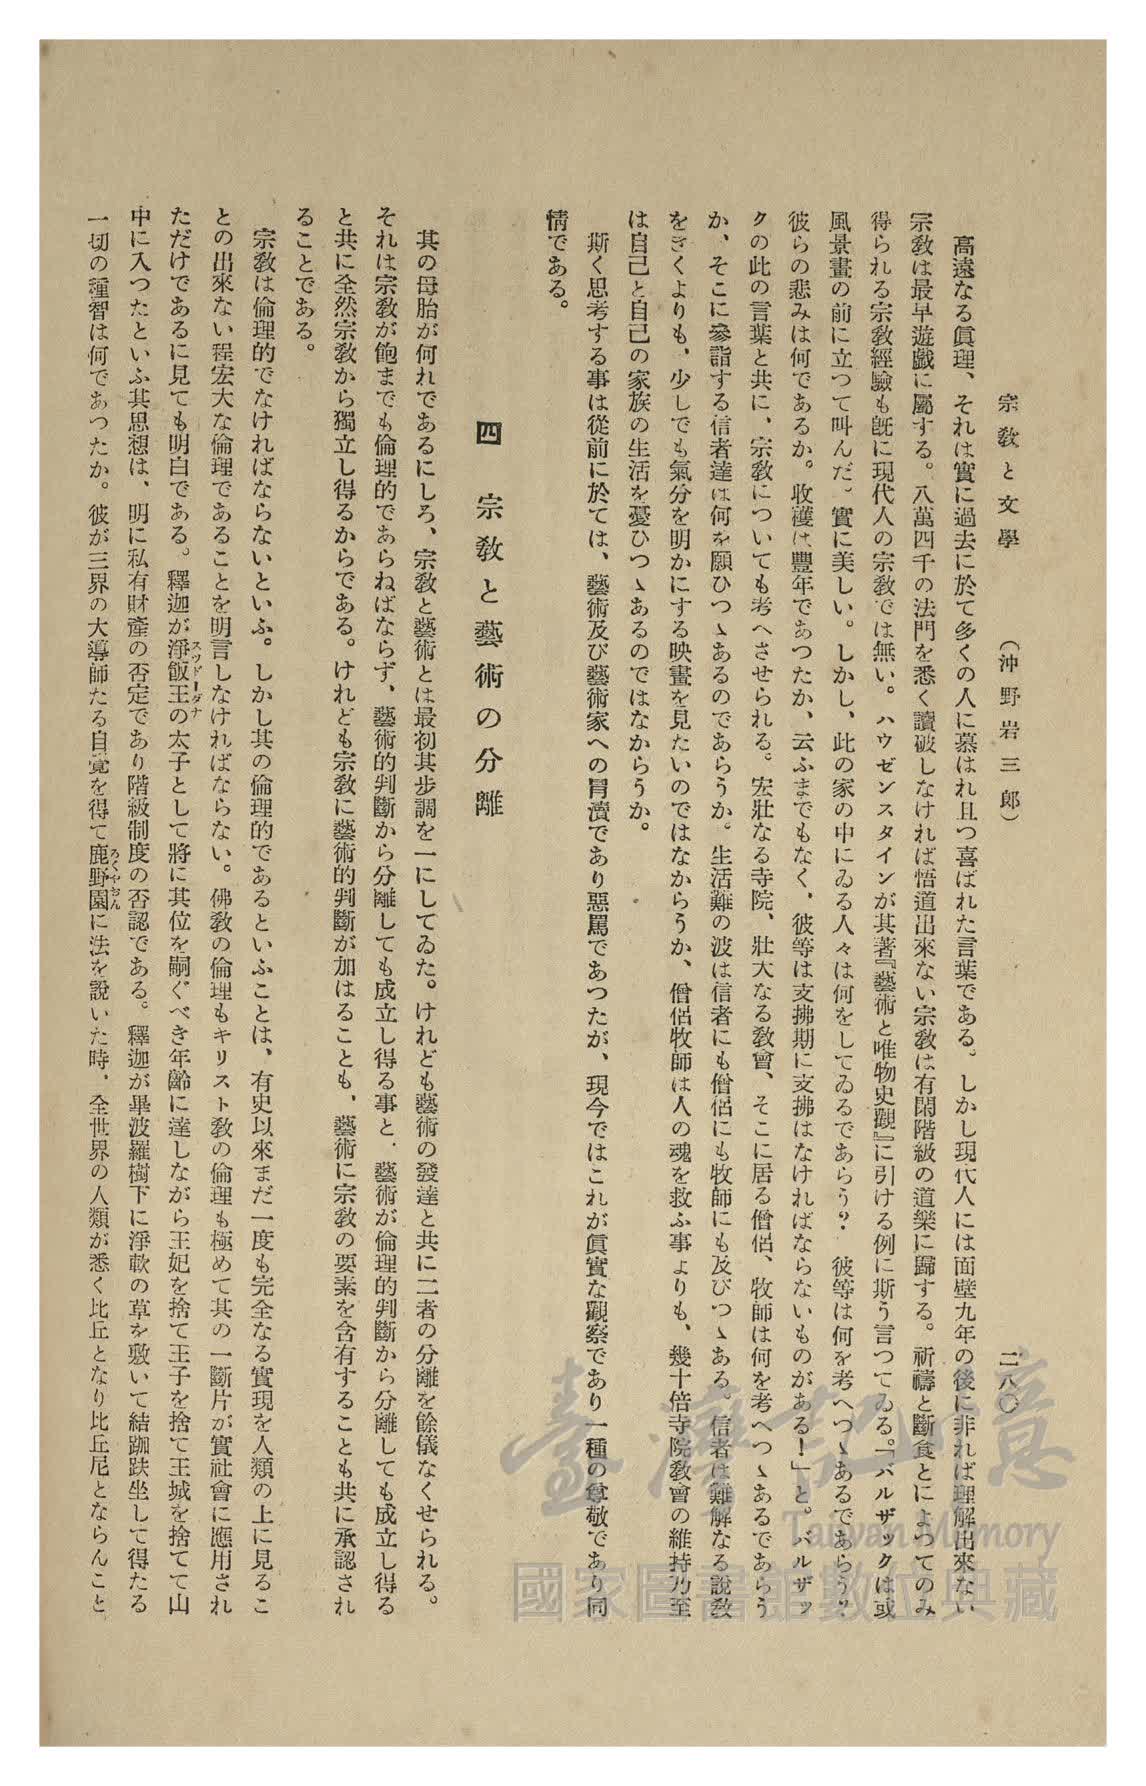 宗教と文學 (沖野岩三郎) 二八〇
高遠なる眞理、それは實に過去に於て多くの人に慕はれ且つ喜ばれた言葉である。しかし現代人には面壁九年の後に非れば理解出來ない
宗教は最早遊戲に屬する。八萬四千の法門を悉く讀破しなければ悟道出來ない宗教は有閑階級の道樂に歸する。祈禱と斷食とによつてのみ
得られる宗教經驗も旣に現代人の宗教では無い。ハウゼンスタインが其著『藝術と唯物史觀』に引ける例に斯う言つてゐる。「バルザックは或
風景畫の前に立つて叫んだ。實に美しい。しかし、此の家の中にゐる人々は何をしてゐるであらう?彼等は何を考へつゝあるであらう?
彼らの悲みは何であるか。收穫は豐年であつたか、云ふまでもなく、彼等は支拂期に支拂はなければならないものがある!」と。バルザッ
クの此の言葉と共に、宗教についても考へさせられる。宏壯なる寺院、壯大なる教會、そこに居る僧侶、牧師は何を考へつゝあるであらう
か、そこに參詣する信者達は何を願ひつゝあるのであらうか。生活難の波は信者にも僧侶にも牧師にも及びつゝある。信者は難解なる說教
をきくよりも、少しでも氣分を明かにする映畫を見たいのではなからうか、僧侶牧師は人の魂を救ふ事よりも、幾十倍寺院教會の維持乃至
は自己と自己の家族の生活を憂ひつゝあるのではなからうか。
斯く思考する事は從前に於ては、藝術及び藝術家への冐瀆であり惡罵であつたが、現今ではこれが眞實な觀察であり一種の尊敬であり同
情である。
四 宗教と藝術の分離
其の母胎が何れであるにしろ、宗教と藝術とは最初其步調を一にしてゐた。けれども藝術の發達と共に二者の分離を餘儀なくせられる。
それは宗教が飽までも倫理的であらねばならず、藝術的判斷から分離しても成立し得る事と、藝術が倫理的判斷から分離しても成立し得る
と共に全然宗教から獨立し得るからである。けれども宗教に藝術的判斷が加はることも、藝術に宗教の要素を含有することも共に承認され
ることである。
宗教は倫理的でなければならないといふ。しかし其の倫理的であるといふことは、有史以來まだ一度も完全なる實現を人類の上に見るこ
との出來ない程宏大な倫理であることを明言しなければならない。佛教の倫理もキリスト教の倫理も極めて其の一斷片が實社會に應用され
ただけであるに見ても明白である。釋迦が淨飯王の太子として將に其位を嗣ぐべき年齡に達しながら王妃を捨て王子を捨て王城を捨てて山
スウドーダナ
中に入つたといふ其思想は、明に私有財產の否定であり階級制度の否認である。釋迦が畢波羅樹下に淨軟の草を敷いて結跏趺坐して得たる
一切の種智は何であつたか。彼が三界の大導師たる自覺を得て鹿野園に法を說いた時、全世界の人類が悉く比丘となり比丘尼とならんこと
ろくやおん
臺灣記憶
Taiwan Memory
國家圖書館數位典藏